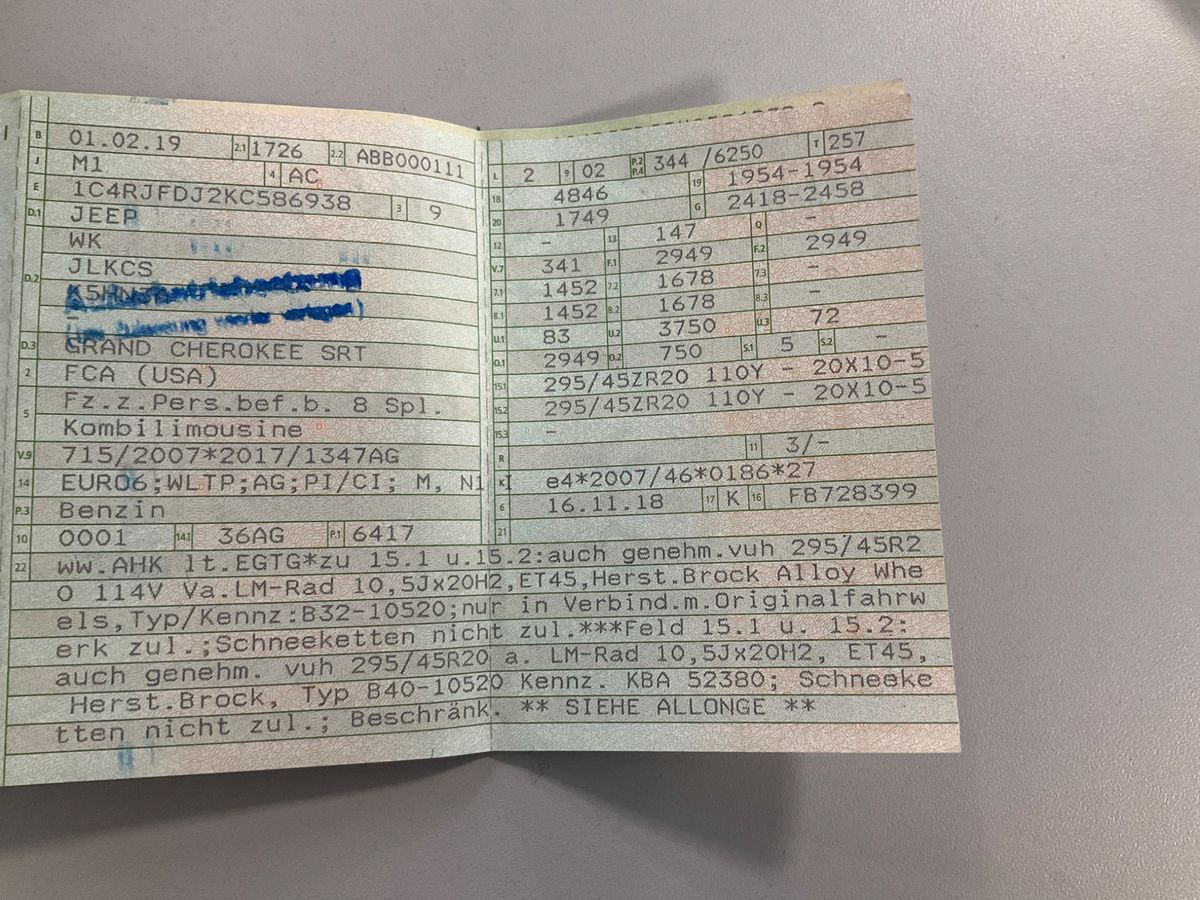 B 01.02.19 2.1 1726 2.2 ABB000111
J M1 4 AC
E 1C4RJFDJ2KC586938 3 9
D.1 JEEP
WK
D.2 JLKCS
-
D.3 GRAND CHEROKEE SRT
2 FCA (USA)
5 Fz.z.Pers.bef.b. 8 Spl.
Kombilimousine
V.9 715/2007*2017/1347AG
14 EURO6;WLTP;AG;PI/CI; M, N1 I
P.3 Benzin
10 0001 14.1 36AG P.1 6417
L 2 9 02 P.2 P.4 344 /6250 T 257
18 4846 19 1954-1954
20 1749 G 2418-2458
12 - 13 147 Q -
V.7 341 F.1 2949 F.2 2949
7.1 1452 7.2 1678 7.3 -
8.1 1452 8.2 1678 8.3 -
U.1 83 U.2 3750 U.3 72
O.1 2949 O.2 750 S.1 5 S.2 -
15.1 295/45ZR20 110Y - 20X10-5
15.2 295/45ZR20 110Y - 20X10-5
15.3 -
R 11 3/-
K e4*2007/46*0186*27
6 16.11.18 17 K 16 FB728399
21
22 WW.AHK lt.EGTG*zu 15.1 u.15.2:auch genehm.vuh 295/45R2
0 114V Va.LM-Rad 10,5Jx20H2,ET45,Herst.Brock Alloy Whe
els,Typ/Kennz:B32-10520;nur in Verbind.m.Originalfahrw
erk zul.;Schneeketten nicht zul.***Feld 15.1 u. 15.2:
auch genehm. vuh 295/45R20 a. LM-Rad 10,5Jx20H2, ET45,
Herst.Brock, Typ B40-10520 Kennz. KBA 52380; Schneeke
tten nicht zul.; Beschränk. ** SIEHE ALLONGE **